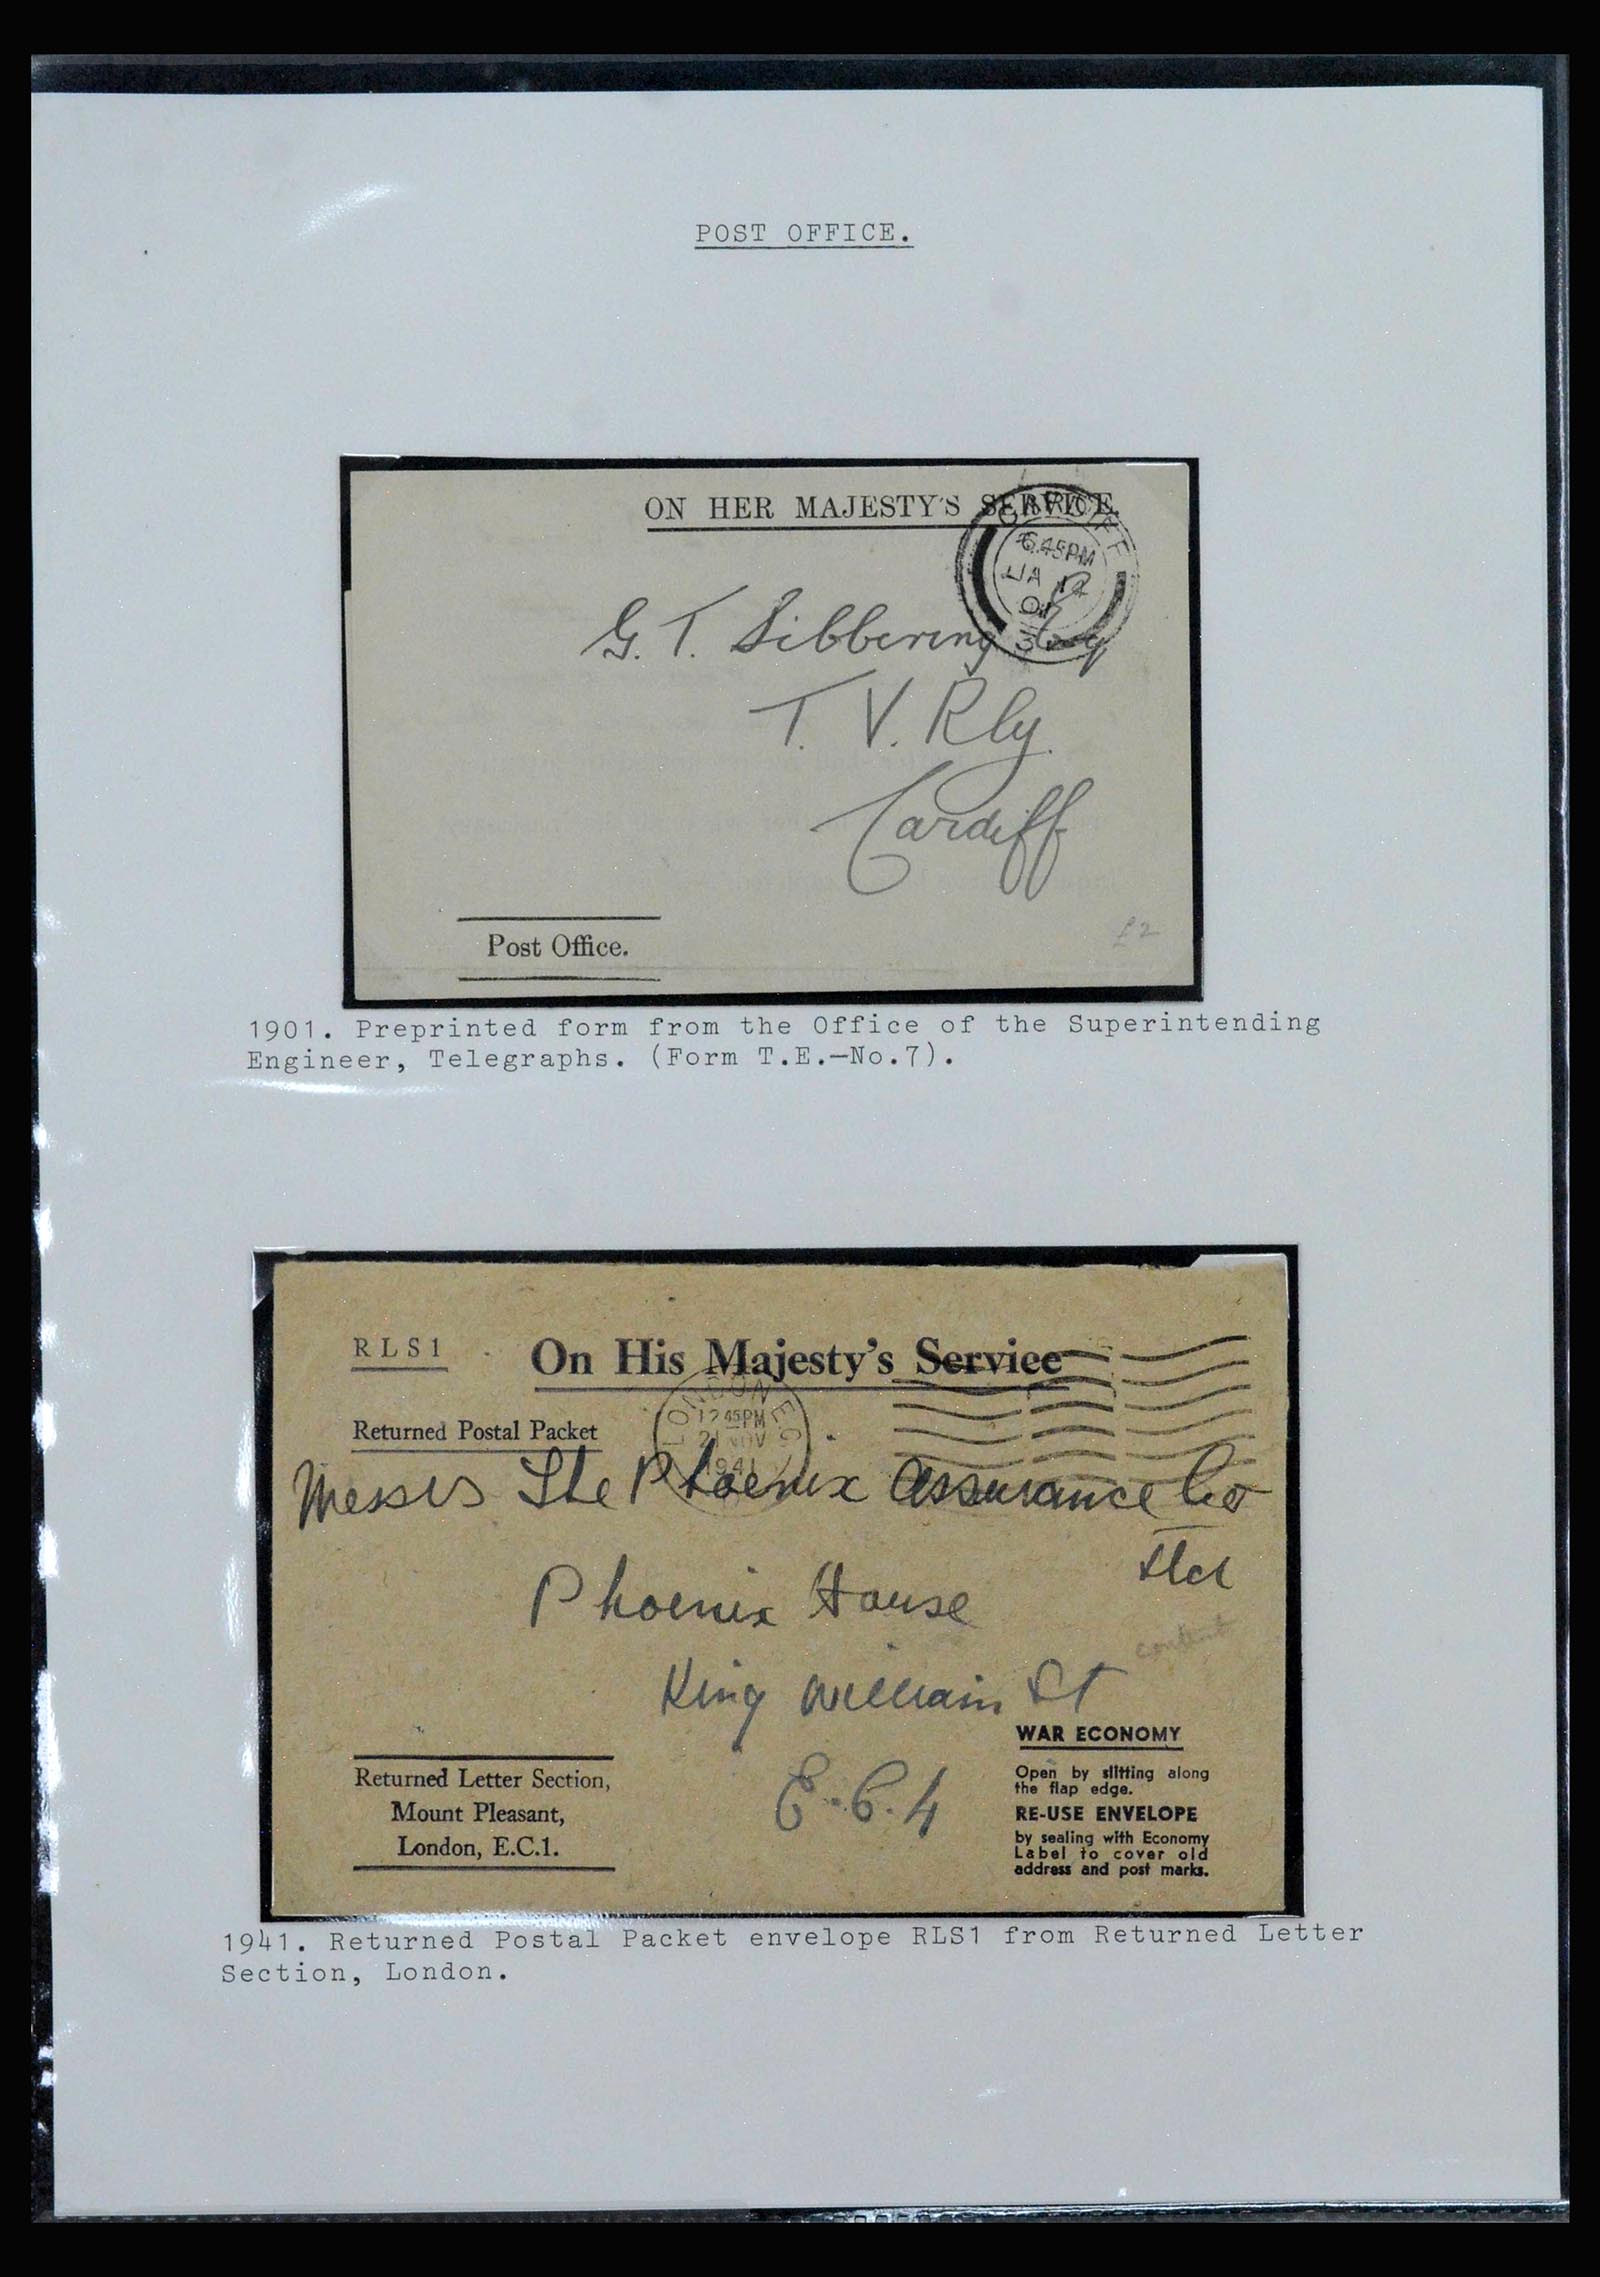 POST OFFICE.
ON HER MAJESTY'S SERVICE.
CARDIFF
6.45PM
JA 12
01
G. T. Sibbering Esq
T. V. Rly.
Cardiff
£2
Post Office.
1901. Preprinted form from the Office of the Superintending
Engineer, Telegraphs. (Form T.E.—No.7).
RLS1
On His Majesty's Service
Returned Postal Packet
LONDON E.C.
12 45PM
21 NOV
1941
Messrs The Phoenix Assurance Co
Ltd
Phoenix House
content
King William St
E.C.4
WAR ECONOMY
Open by slitting along
the flap edge.
RE-USE ENVELOPE
by sealing with Economy
Label to cover old
address and post marks.
Returned Letter Section,
Mount Pleasant,
London, E.C.1.
1941. Returned Postal Packet envelope RLS1 from Returned Letter
Section, London.